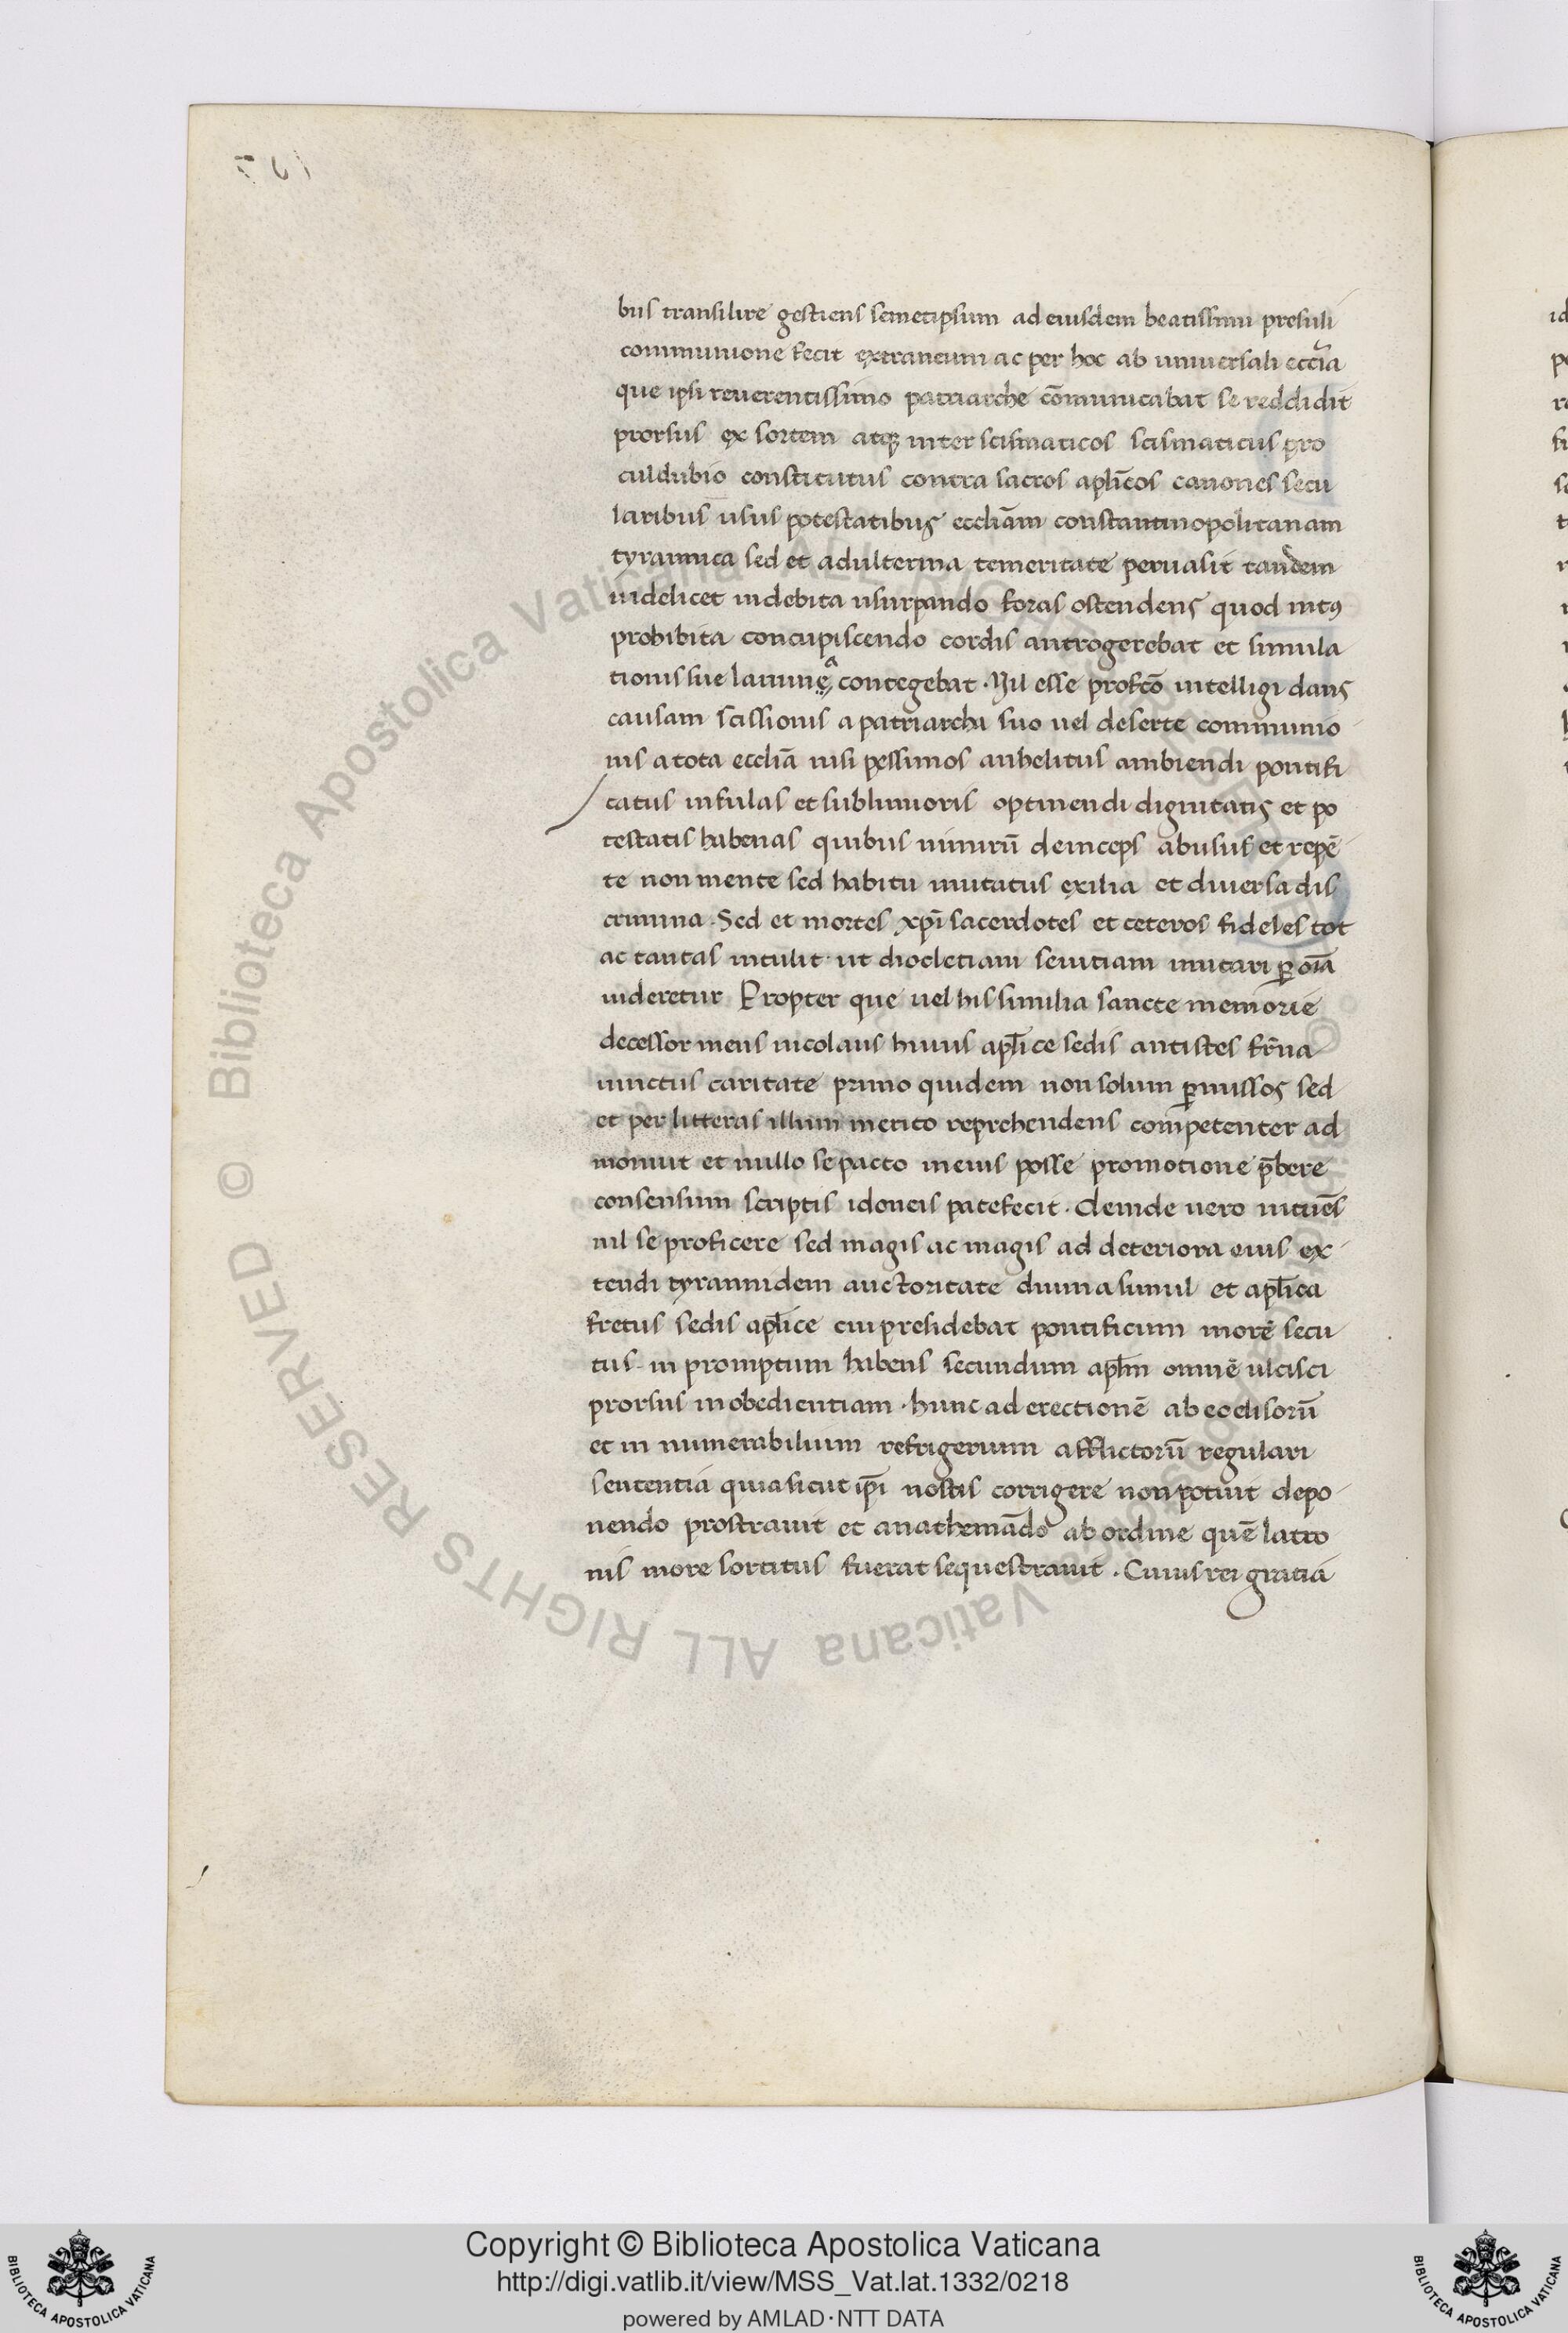 bus transilire gestiens semetipsum ad eiusdem beatissimi presuli
communione fecit extraneum ac per hoc ab universali eccl̃ia
que ipsi reuerentissimo patriarche cōmunicabat se reddidit
prorsus ex sortem atqꝫ inter scismaticos scismaticus pro
culdubio constitutus contra sacros apl̄icos canones secu
laribus usus potestatibus eccl̄iam constantinopolitanam
tyrannica sed et adulterina temeritate peruasit tandem
uidelicet indebita usurpando foras ostendens quod intꝰ
prohibita concupiscendo cordis antro gerebat et simula
tionis sue lamine contegebat. Nil esse profco̅ intelligi dans
causam scissionis a patriarcha suo uel deserte communio
nis a tota eccl̄ia nisi pessimos anhelitus ambiendi pontifi
catus infulas et sublimioris optinendi dignitatis et po
testatis habenas quibus nimirū deinceps abusus et repē
te non mente sed habitu mutatus exilia et diuersa dis
crimina. Sed et mortes xp̄i sacerdotes et ceteros fideles tot
ac tantas intulit ut diocletiani seuitiam imitari ꝑ oīa
uideretur Propter que uel his similia sancte memorie
decessor meus nicolaus huius apl̄ice sedis antistes fr̄na
iunctus caritate primo quidem non solum ꝑ missos sed
et per litteras illum merito reprehendens competenter ad
monuit et nullo se pacto in eius posse promotione p̄bere
consensum scriptis idoneis patefecit. Deinde uero intuēs
nil se proficere sed magis ac magis ad deteriora eius ex
tendi tyrannidem auctoritate diuina simul et apl̄ica
fretus sedis apl̄ice cui presidebat pontificum morē secu
tus in promptum habens secundum apl̄m omnē ulcisci
prorsus inobedientiam. hunc ad erectionē ab eo elisorū
et in numerabilium refrigerium afflictorū regulari
sententia quia sicut ip̄i nostis corrigere non potuit depo
nendo prostrauit et anathemādo ab ordine quē latro
nis more sortitus fuerat sequestrauit. Cuius rei gratia
Biblioteca Apostolica Vaticana ALL RIGHTS RESERVED ©
Copyright © Biblioteca Apostolica Vaticana
http://digi.vatlib.it/view/MSS_Vat.lat.1332/0218
powered by AMLAD·NTT DATA
BIBLIOTECA APOSTOLICA VATICANA
BIBLIOTECA APOSTOLICA VATICANA